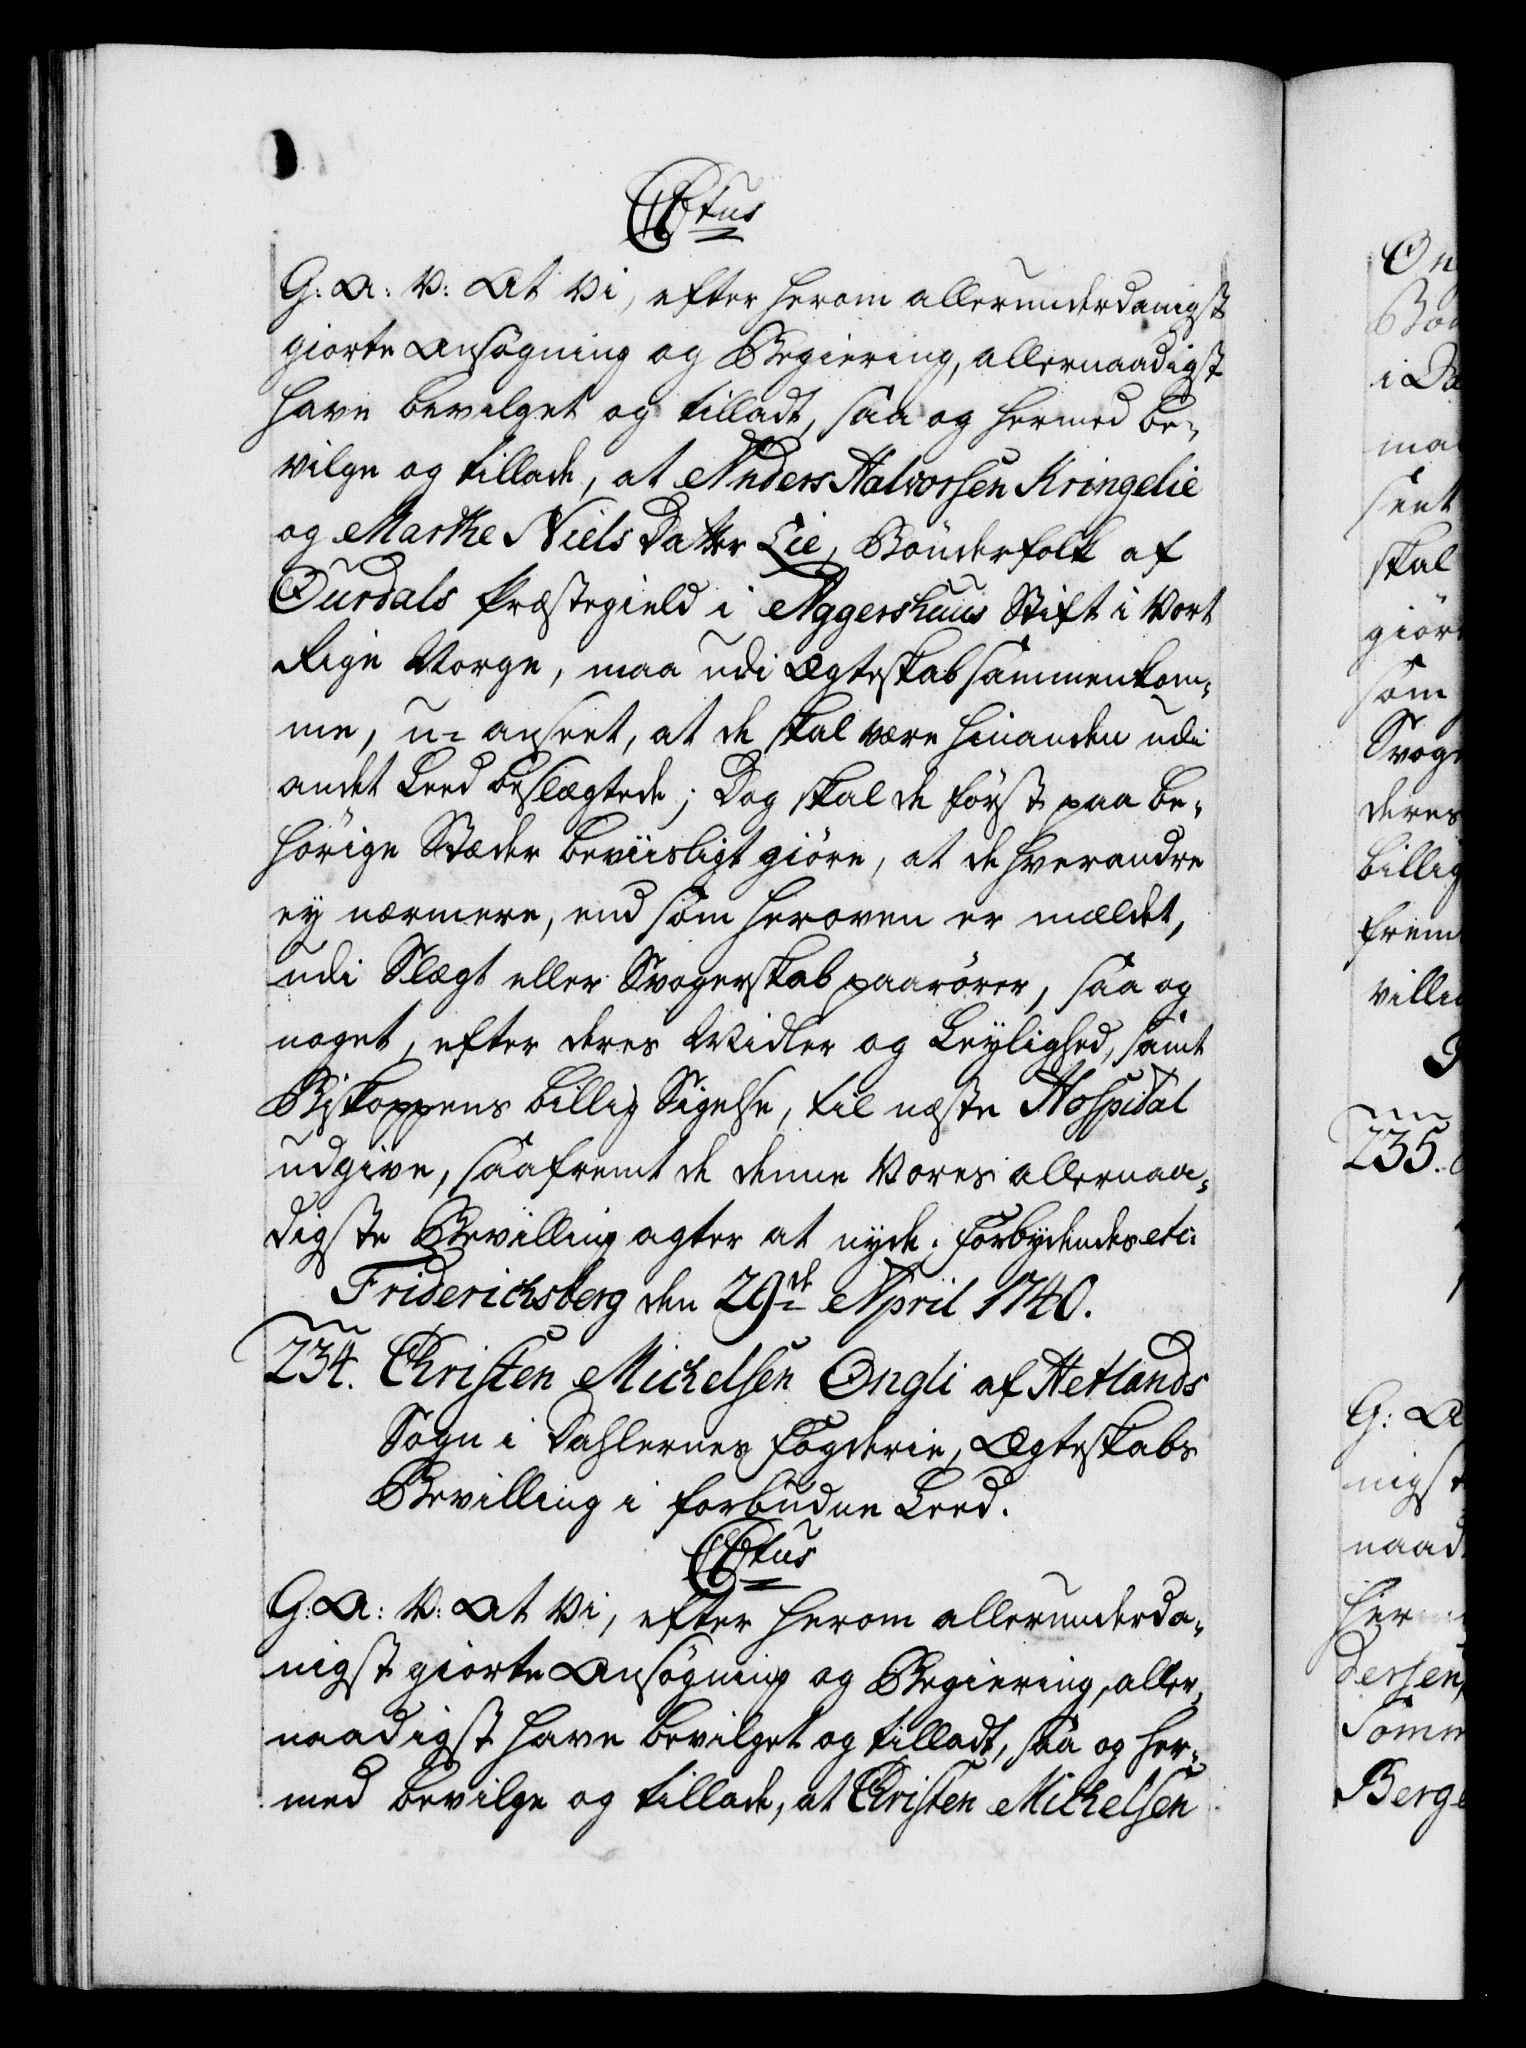 C6tus
G: A: V: At Vi, efter herom allerunderdanigst
giorte Ansögning og Begiering, allernaadigst
have bevilget og tilladt, saa og hermed be-
vilge og tillade, at Anders Halvorsen Kringelie
og Marthe Niels Datter Lie, Bönderfolk af
Ourdals Præstegield i Aggershuus Stift i Vort
Rige Norge, maa udi Ægteskab sammenkom-
me, u-anseet, at de skal være hinanden udi
andet Leed beslægtede; Dog skal de först paa be-
hörige Stæder beviisligt giöre, at de hverandre
ey nærmere, end som heroven er mældet,
udi Slægt eller Svogerskab paarörer, saa og
noget, efter deres Midler og Leylighed, samt
Biskoppens billig Sigelse, til næste Hospital
udgive, saafremt de denne Vores allernaa-
digste Bevilling agter at nyde; Forbydendes etc:
Friderichsberg den 29de April 1740.
234. Christen Michelsen Ongli af Hetlands
Sogn i Dahlernes Fogderie, Ægteskabs
Bevilling i forbudne Leed.
C6tus
G: A: V: At Vi, efter herom allerunderda-
nigst giorte Ansögning og Begiering, aller-
naadigst have bevilget og tilladt, saa og her-
med bevilge og tillade, at Christen Michelsen
235.